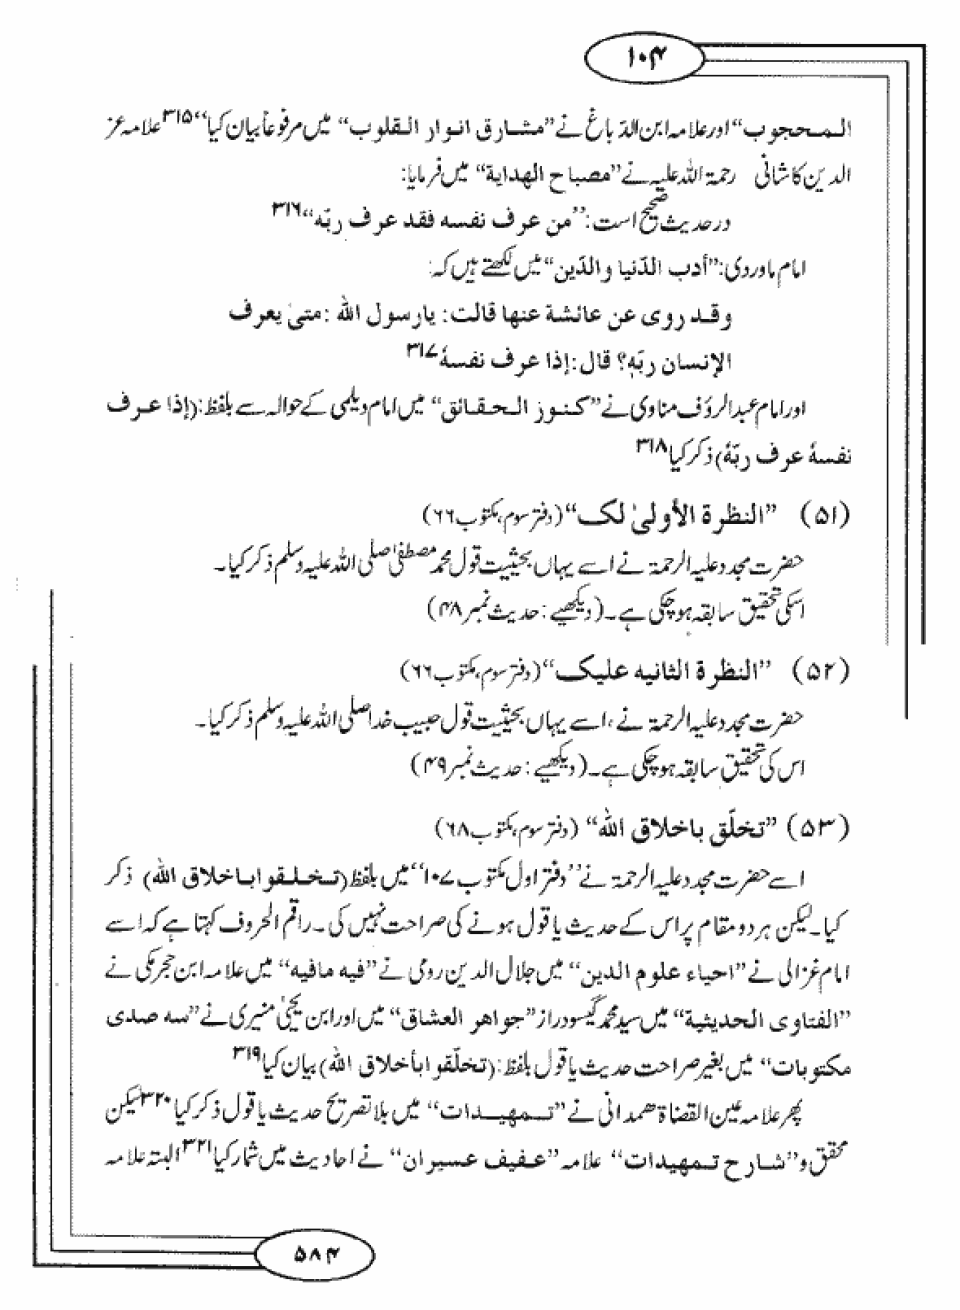 ۱۰۴
المحجوب“ اور علامہ ابن الدّباغ نے ”مشارق انوار القلوب“ میں مرفوعاً بیان کیا“۳۱۵ علامہ عز
الدین کاشانی رحمۃ اللہ علیہ نے ”مصباح الهداية“ میں فرمایا:
در حدیث صحیح است: ”من عرف نفسه فقد عرف ربّه“۳۱۶
امام ماوردی: ”أدب الدّنيا والدّين“ میں لکھتے ہیں کہ:
وقد روى عن عائشة عنها قالت: يارسول الله :متىٰ يعرف
الإنسان ربّهٖ؟ قال :إذا عرف نفسهٗ۳۱۷
اور امام عبدالرؤف مناوی نے ”كنوز الحقائق“ میں امام دیلمی کے حوالہ سے بلفظ: (إذا عرف
نفسهٗ عرف ربّهٗ) ذکر کیا۳۱۸
(۵۱) ”النظرة الأولىٰ لک“ (دفتر سوم، مکتوب ۶۶)
حضرت مجدد علیہ الرحمۃ نے اسے یہاں بحیثیت قول محمد مصطفیٰ صلی اللہ علیہ وسلم ذکر کیا۔
اسکی تحقیق سابقہ ہو چکی ہے۔ (دیکھیے: حدیث نمبر ۴۸)
(۵۲) ”النظرة الثانيه عليک“ (دفتر سوم، مکتوب ۶۶)
حضرت مجدد علیہ الرحمۃ نے، اسے یہاں بحیثیت قول حبیب خدا صلی اللہ علیہ وسلم ذکر کیا۔
اس کی تحقیق سابقہ ہو چکی ہے۔ (دیکھیے: حدیث نمبر ۴۹)
(۵۳) ”تخلّق باخلاق الله“ (دفتر سوم، مکتوب ۶۸)
اسے حضرت مجدد علیہ الرحمۃ نے ”دفتر اول مکتوب ۱۰۷“ میں بلفظ (تخلقوا باخلاق الله) ذکر
کیا۔ لیکن ہر دو مقام پر اس کے حدیث یا قول ہونے کی صراحت نہیں کی۔ راقم الحروف کہتا ہے کہ اسے
امام غزالی نے ”احياء علوم الدين“ میں جلال الدین رومی نے ”فيه مافيه“ میں علامہ ابن حجر مکی نے
”الفتاوى الحديثية“ میں سید محمد گیسودراز ”جواهر العشاق“ میں اور ابن یحیٰی منیری نے ”سه صدى
مكتوبات“ میں بغیر صراحت حدیث یا قول بلفظ: (تخلّقوا بأخلاق الله) بیان کیا۳۱۹
پھر علامہ عین القضاۃ ھمدانی نے ”تمهيدات“ میں بلا تصریح حدیث یا قول ذکر کیا۳۲۰ لیکن
محقق و ”شارح تمهيدات“ علامہ ”عفيف عسيران“ نے احادیث میں شمار کیا۳۲۱ البتہ علامہ
۵۸۴